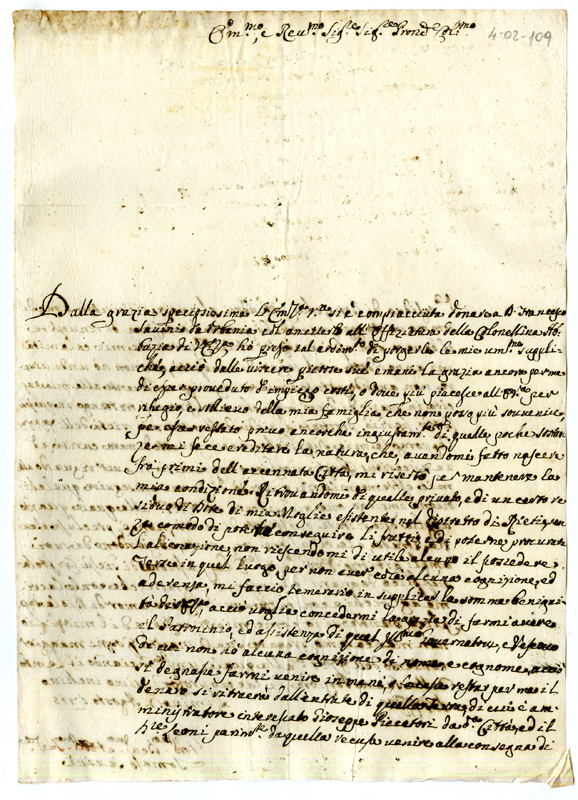 Em.mo, e Rev.mo Sig.re Sig.re Prone Col.mo
4-02-109
Dalla grazia speciosissima l'Em.za V.ra si è compiacciuta donare a D. Francesco
Savini da Urbania coll'ametterlo all' Offiziatura della Colonellina Ab-
bazia di V. Em.za hò preso tal ardim.to di porgerle le mie um.me suppli-
che, acciò dalle viscere pietose sue emani la grazia ancora per me
di esser proveduto d'impiego costì, o dove più piacesse all' per
rifugio, e sollievo della mia famiglia, che non posso più sovvenire,
per esser restato privo ancorche ingiustam.te di quelle poche sostan-
ze mi fece ereditare la natura, che, avendomi fatto nascere
frà primi dell' accennata Città, mi ristò per mantenere la
mia condizione. Ritrovandomi di quelle privato, e di un certo re-
siduo di Dote di mia Moglie esistente nel Distretto di Rieti sen-
za comodo di poterne conseguire li frutti, e di poterne procurare
l'alienazione, non riescendomi di utile alcuno il possedere
Terre in quel luogo, per non aver colà alcuna cognizione, ed
aderenza, mi faccio temerario in supplicar la somma benigni-
tà di V. Em.za acciò voglia concedermi la grazia di farmi avere
il Patrocinio, ed assistenza di quel Governatore, e Vescovo
di cui non hò alcuna cognizione di nome, e cognome, acciò
si degnasse farmi venire in mano, o
denaro si ritraerà dall'entrate di quelle terre, di cui è am-
ministratore interessato Gioseppe Piccatori da d.a Città, ed il
Leoni parim.te da quella recusa venire alla consegna di